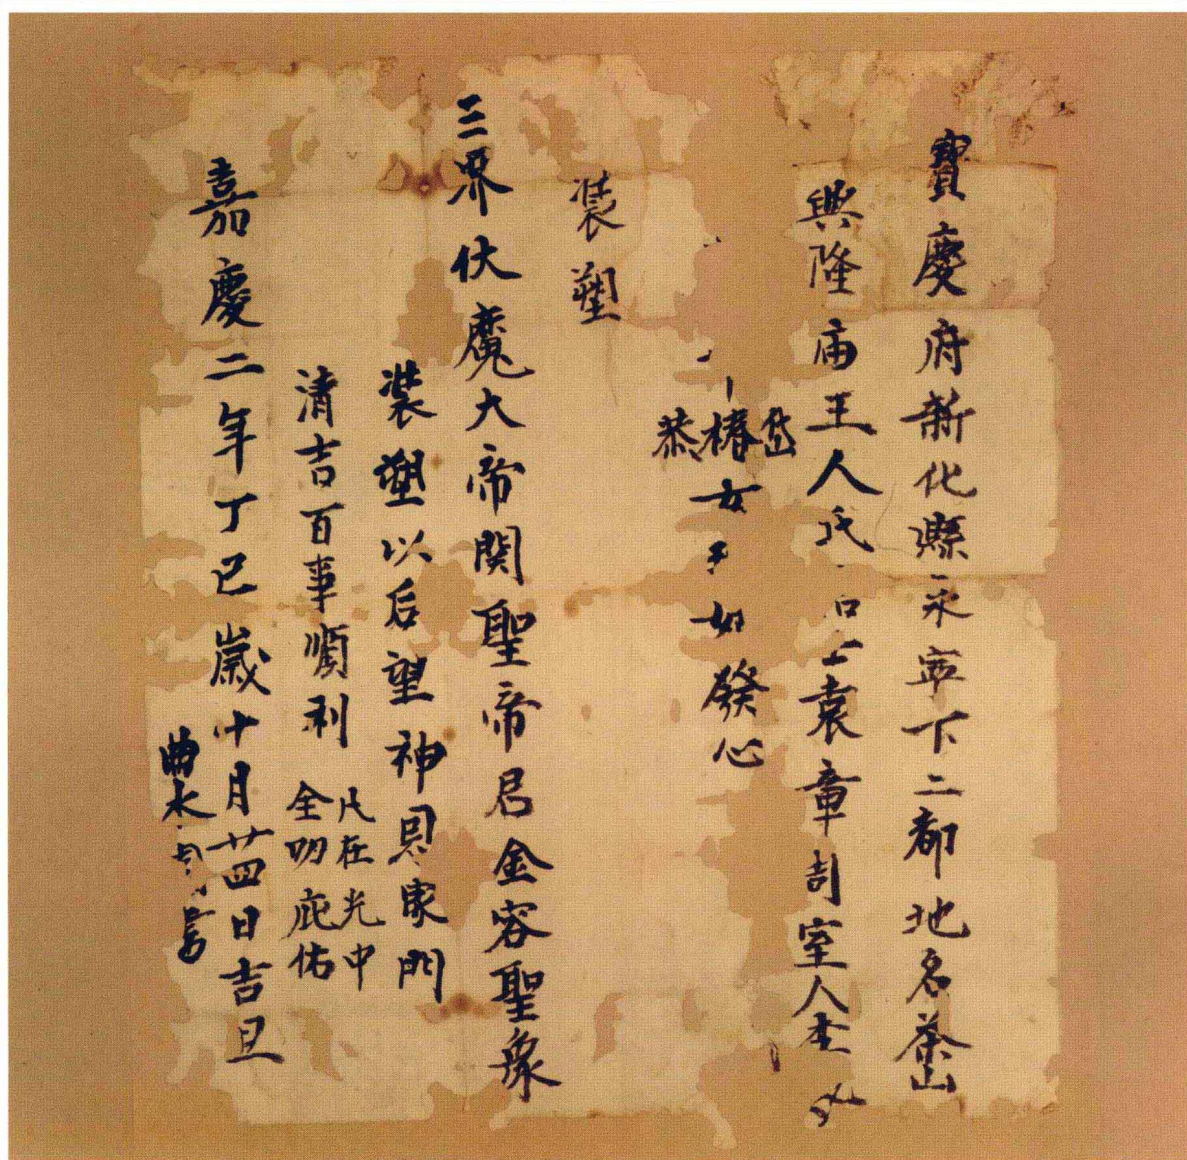 寶慶府新化縣永寧下二都地名茶山
興隆庙王人氏 士袁章 室人
椿 恭 女 發心
裝塑
三界伏魔大帝関聖帝君金容聖象
裝塑以后望神恩家門
清吉百事順利 凡在光中
全叨庇佑
嘉慶二年丁巳歲十月廿四日吉旦
曲水 書